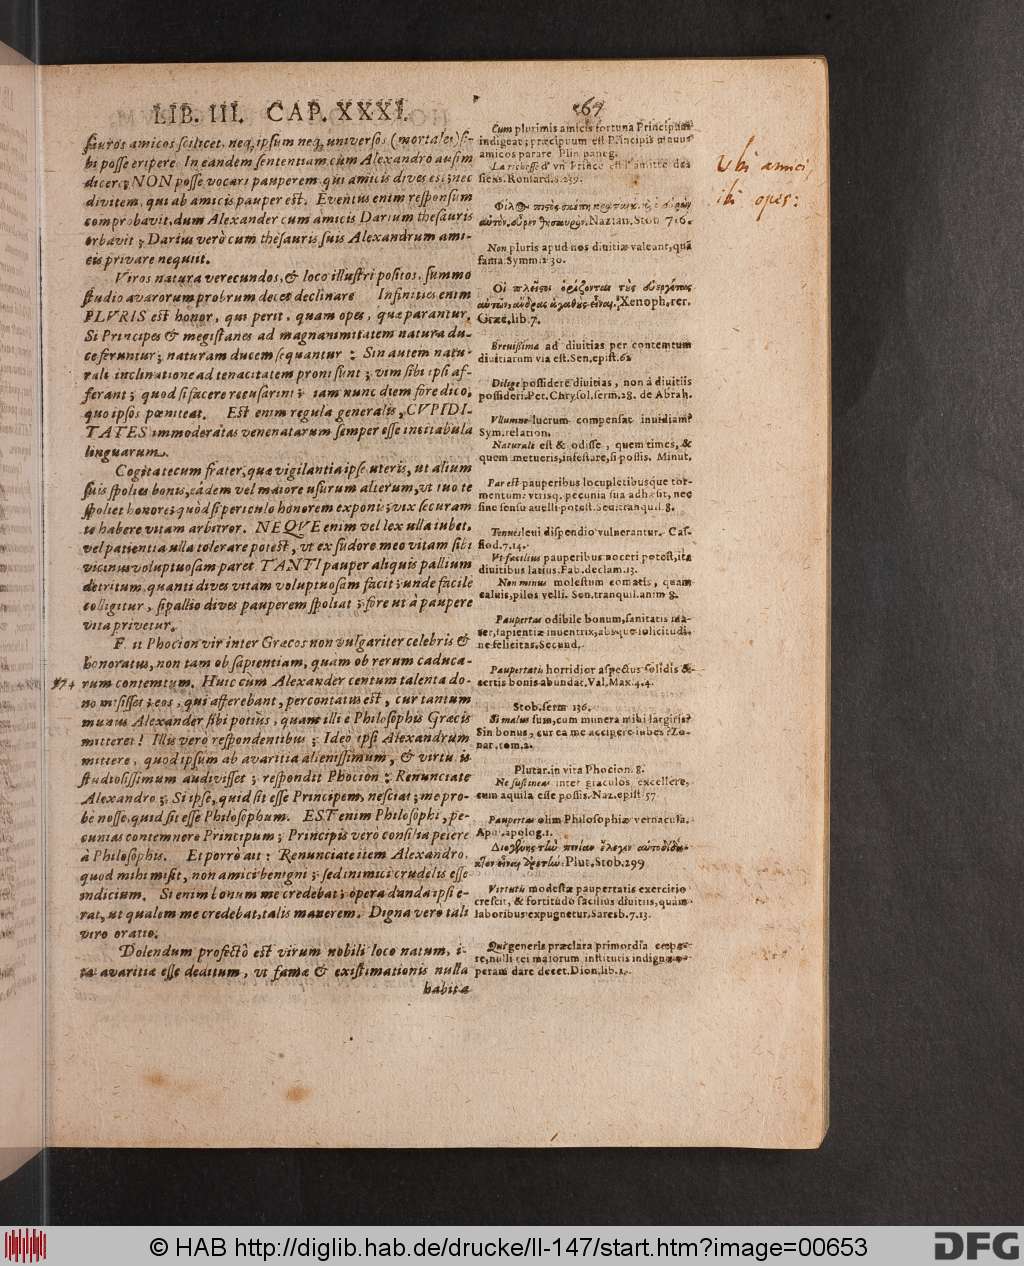 LIB. III. CAP. XXXI.
suros amicos scilicet, neq, ipsum neq, universos (mortales) si-
bi posse eripere. In eandem sententiam cum Alexandro ausim
dicere; NON posse vocari pauperem qui amicis dives est; nec
divitem, qui ab amicis pauper est. Eventus enim responsum
comprobavit, dum Alexander cum amicis Darium thesauris
orbavit; Darius verò cum thesauris suis Alexandrum ami-
cis privare nequiit.
Viros natura verecundos, & loco illustri positos, summo
studio avarorum probrum decet declinare Infinities enim
PLVRIS est honor, qui perit, quam opes, quæ parantur.
Si Principes & megistanes ad magnanimitatem natura du-
ce feruntur; naturam ducem sequantur: Sin autem natu-
rali inclinatione ad tenacitatem proni sunt; vim sibi ipsi af-
ferant; quod si facere recusarint; iam nunc diem fore dico,
quo ipsos pœniteat. Est enim regula generalis, CVPIDI-
TATES immoderatas venenatarum semper esse incitabula
linguarum.
Cogita tecum frater, qua vigilantia ipse uteris, ut alium
suis spolies bonis, eadem vel maiore usurum alterum, ut tuo te
spoliet honore; quòd si periculo honorem exponis; vix securam
te habere vitam arbitror. NEQVE enim vel lex ulla iubet,
vel patientia ulla tolerare potest, ut ex sudore meo vitam sibi
vicinus voluptuosam paret TANTI pauper aliquis pallium
detritum, quanti dives vitam voluptuosam facit; unde facile
colligitur, si pallio dives pauperem spoliat; fore ut à paupere
vita privetur.
F. it Phocion vir inter Græcos non vulgariter celebris &
honoratus, non tam ob sapientiam, quam ob rerum caduca-
974 rum contemtum. Huic cum Alexander centum talenta do-
no misisset; eos, qui afferebant, percontatus est, cur tantum
munus Alexander sibi potius, quam illi è Philosophis Græcis
mitteret? Illis verò respondentibus; Ideò ipsi Alexandrum
mittere, quod ipsum ab avaritia alienissimum, & virtutis
studiosissimum audivisset; respondit Phocion: Renunciate
Alexandro; Si ipse, quid sit esse Principem, nesciat; me pro-
be nosse, quid sit esse Philosophum. EST enim Philosophi, pe-
cunias contemnere Principum; Principis verò consilia petere
à Philosophis. Et porrò ait: Renunciate item Alexandro,
quod mihi misit, non amici benigni; sed inimici crudelis esse
indicium. Si enim bonum me credebat; opera danda ipsi e-
rat, ut qualem me credebat, talis manerem. Digna vero tali
viro oratio.
Dolendum profectò est virum nobili loco natum, i-
ta avaritiæ esse deditum, ut famæ & existimationis nulla
habita
Cum plurimis amicis fortuna Principum
indigeat; præcipuum est Principis munus
amicos parare. Plin. paneg.
La richesse d'vn Prince est l'amitie des
siens. Ronsard.
Nazian. Stob 716.
Non pluris apud nos divitiæ valeant, quã
fama. Symm. 2 30.
Xenoph. rer.
Græc. lib. 7.
Brevissima ad divitias per contemtum
divitiarum via est. Sen. epist. 62
Dilige possidere divitias, non à divitiis
possideri. Pet. Chrysol. serm. 28. de Abrah.
lucrum compensat invidiam?
Sym. relation.
Naturale est & odisse, quem times, &
quem metueris, infestare, si possis. Minut.
Par est pauperibus locupletibusque tor-
mentum: utrisq; pecunia sua adhæsit, nec
sine sensu avelli potest. Sen. tranquil. 8.
Tenues levi dispendio vulnerantur. Cas-
siod. 7.14.
Vt facilius pauperibus noceri potest, ita
divitibus latius. Fab. declam. 13.
Non minus molestum comatis, quam
calvis, pilos velli. Sen. tranquil. anim 8.
Paupertas odibile bonum, sanitatis ma-
ter, sapientiæ inventrix, absque solicitudi-
ne felicitas. Secund.
Paupertatis horridior aspectus solidis &
certis bonis abundat. Val. Max. 4.4.
Stob. serm 136.
Si malus sum, cum munera mihi largiris?
Sin bonus, cur ea me accipere iubes? Zo-
nar. tom. 2.
Plutar. in vita Phocion. 8.
Ne sustineas inter graculos excellere,
cum aquila esse possis. Naz. epist 57
Paupertas olim Philosophiæ vernacula.
Apu. apolog. 1.
Plut. Stob. 299
Virtutis modestæ paupertatis exercitio
crescit, & fortitudo facilius divitiis, quàm
laboribus expugnetur. Saresb. 7.13.
Qui generis præclara primordia
institutis
dare decet. Dion. lib. 1.
Vbi amici,
ibi opes:
© HAB http://diglib.hab.de/drucke/ll-147/start.htm?image=00653
DFG